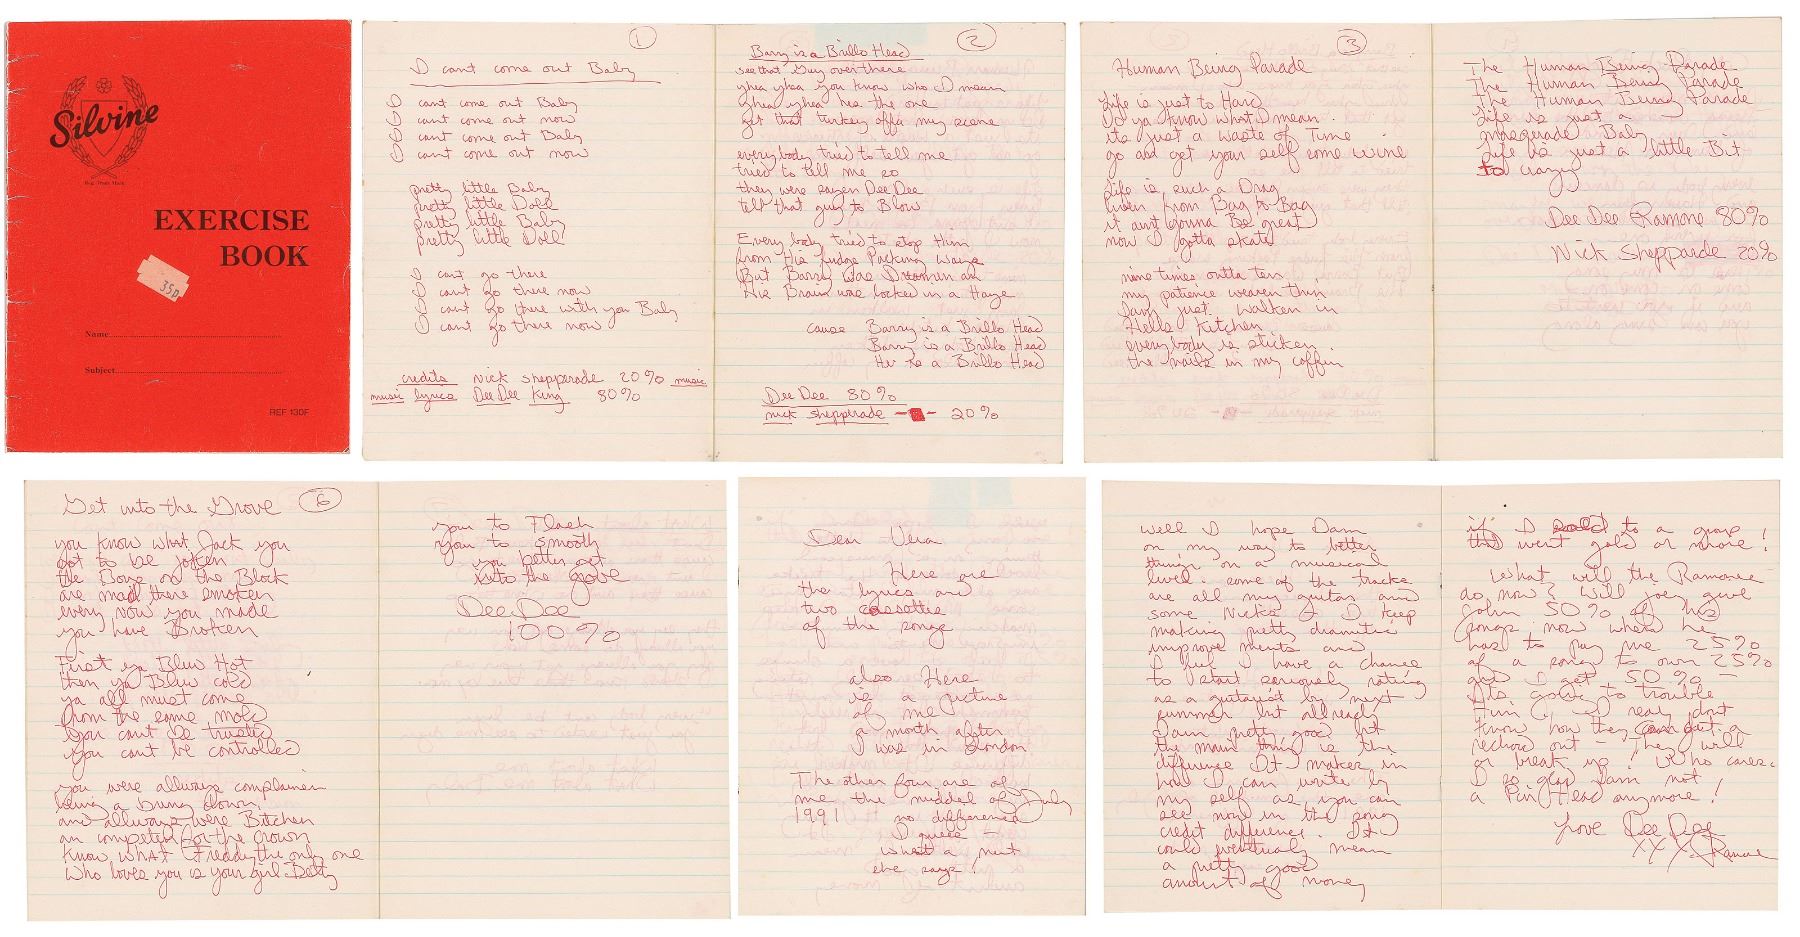 Silvine
Reg. Trade Mark
EXERCISE
BOOK
35p
Name
Subject
REF 130F
1
I cant come out Baby
I cant come out Baby
I cant come out now
I cant come out Baby
I cant come out now
pretty little Baby
pretty little Doll
pretty little Baby
pretty little Doll
I cant go there
I cant go there now
I cant go there with you Baby
I cant go there now
credits nick shepparde 20% music
music lyrics Dee Dee King 80%
2
Barry is a Brillo Head
see that Guy over there
yhea yhea you know who I mean
yhea yhea hes the one
get that turkey offa my scene
everybody tried to tell me
tried to tell me so
they were sayen Dee Dee
tell that guy to Blow
Every body tried to stop Him
from His fudge Packing Ways
But Barry was
His Brain was locked in a Haze
cause Barry is a Brillo Head
Barry is a Brillo Head
He is a Brillo Head
Dee Dee 80%
nick shepperade - - 20%
3
Human Being Parade
Life is just to Hard
D ya know what I mean
its just a waste of Time
go and get your self some wine
Life is such a Drag
liven from Bag to Bag
it aint gonna Be great
now I gotta skate
nine times outta ten
my patience wearen thin
I am just walken in
Hells Kitchen
everybody is sticken
the nails in my coffin
The Human Being Parade
The Human Being Parade
The Human Being Parade
Life is just a
masqerade Baby
Life is just a little Bit
to crazy
Dee Dee Ramone 80%
Nick Shepparde 20%
6
Get into the Grove
you know what Jack you
got to be joken
the Boys on the Block
are mad there smoken
every vow you made
you have Broken
First ya Blew Hot
then ya Blew cold
ya all must come
from the same mold
you cant be trusted
you cant be controlled
you were allways complainen
being a bring down
and allways were Bitchen
an competed for the crown
know what Freddy the only one
who loves you is your girl Betty
you to Flash
you to smooth
you better get
into the grove
Dee Dee
100%
Dear Vera
Here are
the lyrics and
two cassettes
of the songs
also Here
is a picture
of me
a month after
I was in London
The other four are of
me the middel of July
1991 no difference
I guess -
what a nut
she says!
well I hope I am
on my way to better
things on a musical
level. some of the tracks
are all my guitar and
some Nicks & I keep
making pretty dramatic
improve ments and
I feel I have a chance
to start seriously rating
as a guitarist by next
summer but allready
I am pretty good but
the main thing is the
difference It makes in
how I can write by
my self as you can
see now in the song
credit difference. It
could eventually mean
a pretty good
amount of money
if I to a group
that went gold or more!
What will the Ramones
do now? Will joey give
john 50% of his
songs now when he
has to pay me 25%
of a song to own 25%
and I get 50% -
Its going to trouble
Him I really dont
know how they get a
rechord out - they will
or break up! Who cares.
I so glad I am not
a Pin Head anymore!
Love Dee Dee
XXX Ramone